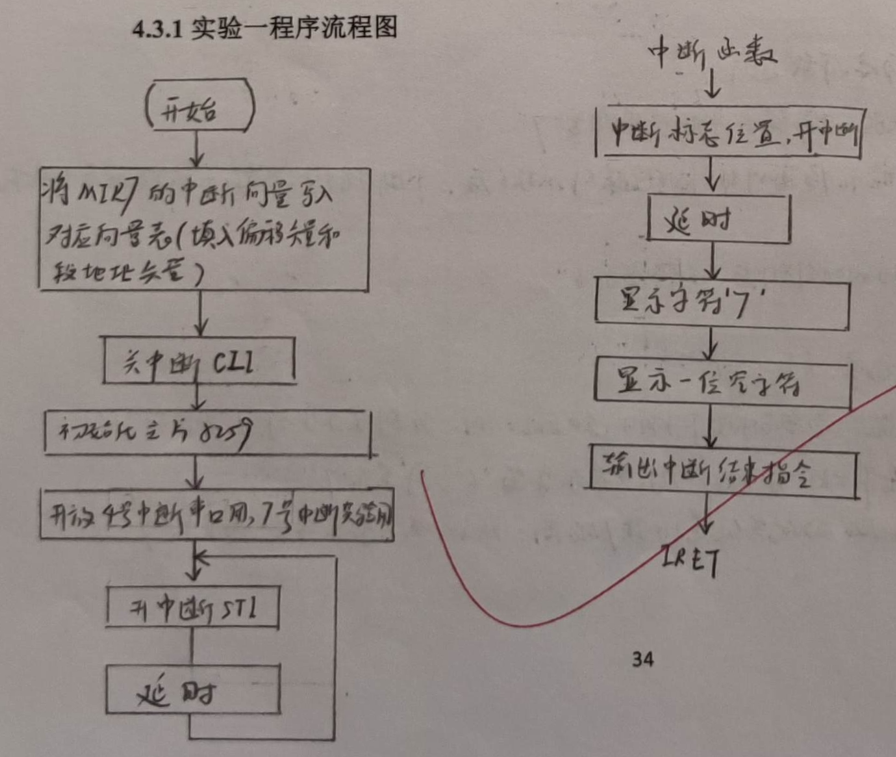 4.3.1 实验一程序流程图
开始
将MIR7的中断向量写入
对应向量表(填入偏移矢量和
段地址矢量)
关中断CLI
初始化主片8259
开放4号中断串口用,7号中断实验用
开中断STI
延时
中断函数
中断标志位置,开中断
延时
显示字符'7'
显示一位空字符
输出中断结束指令
IRET
34